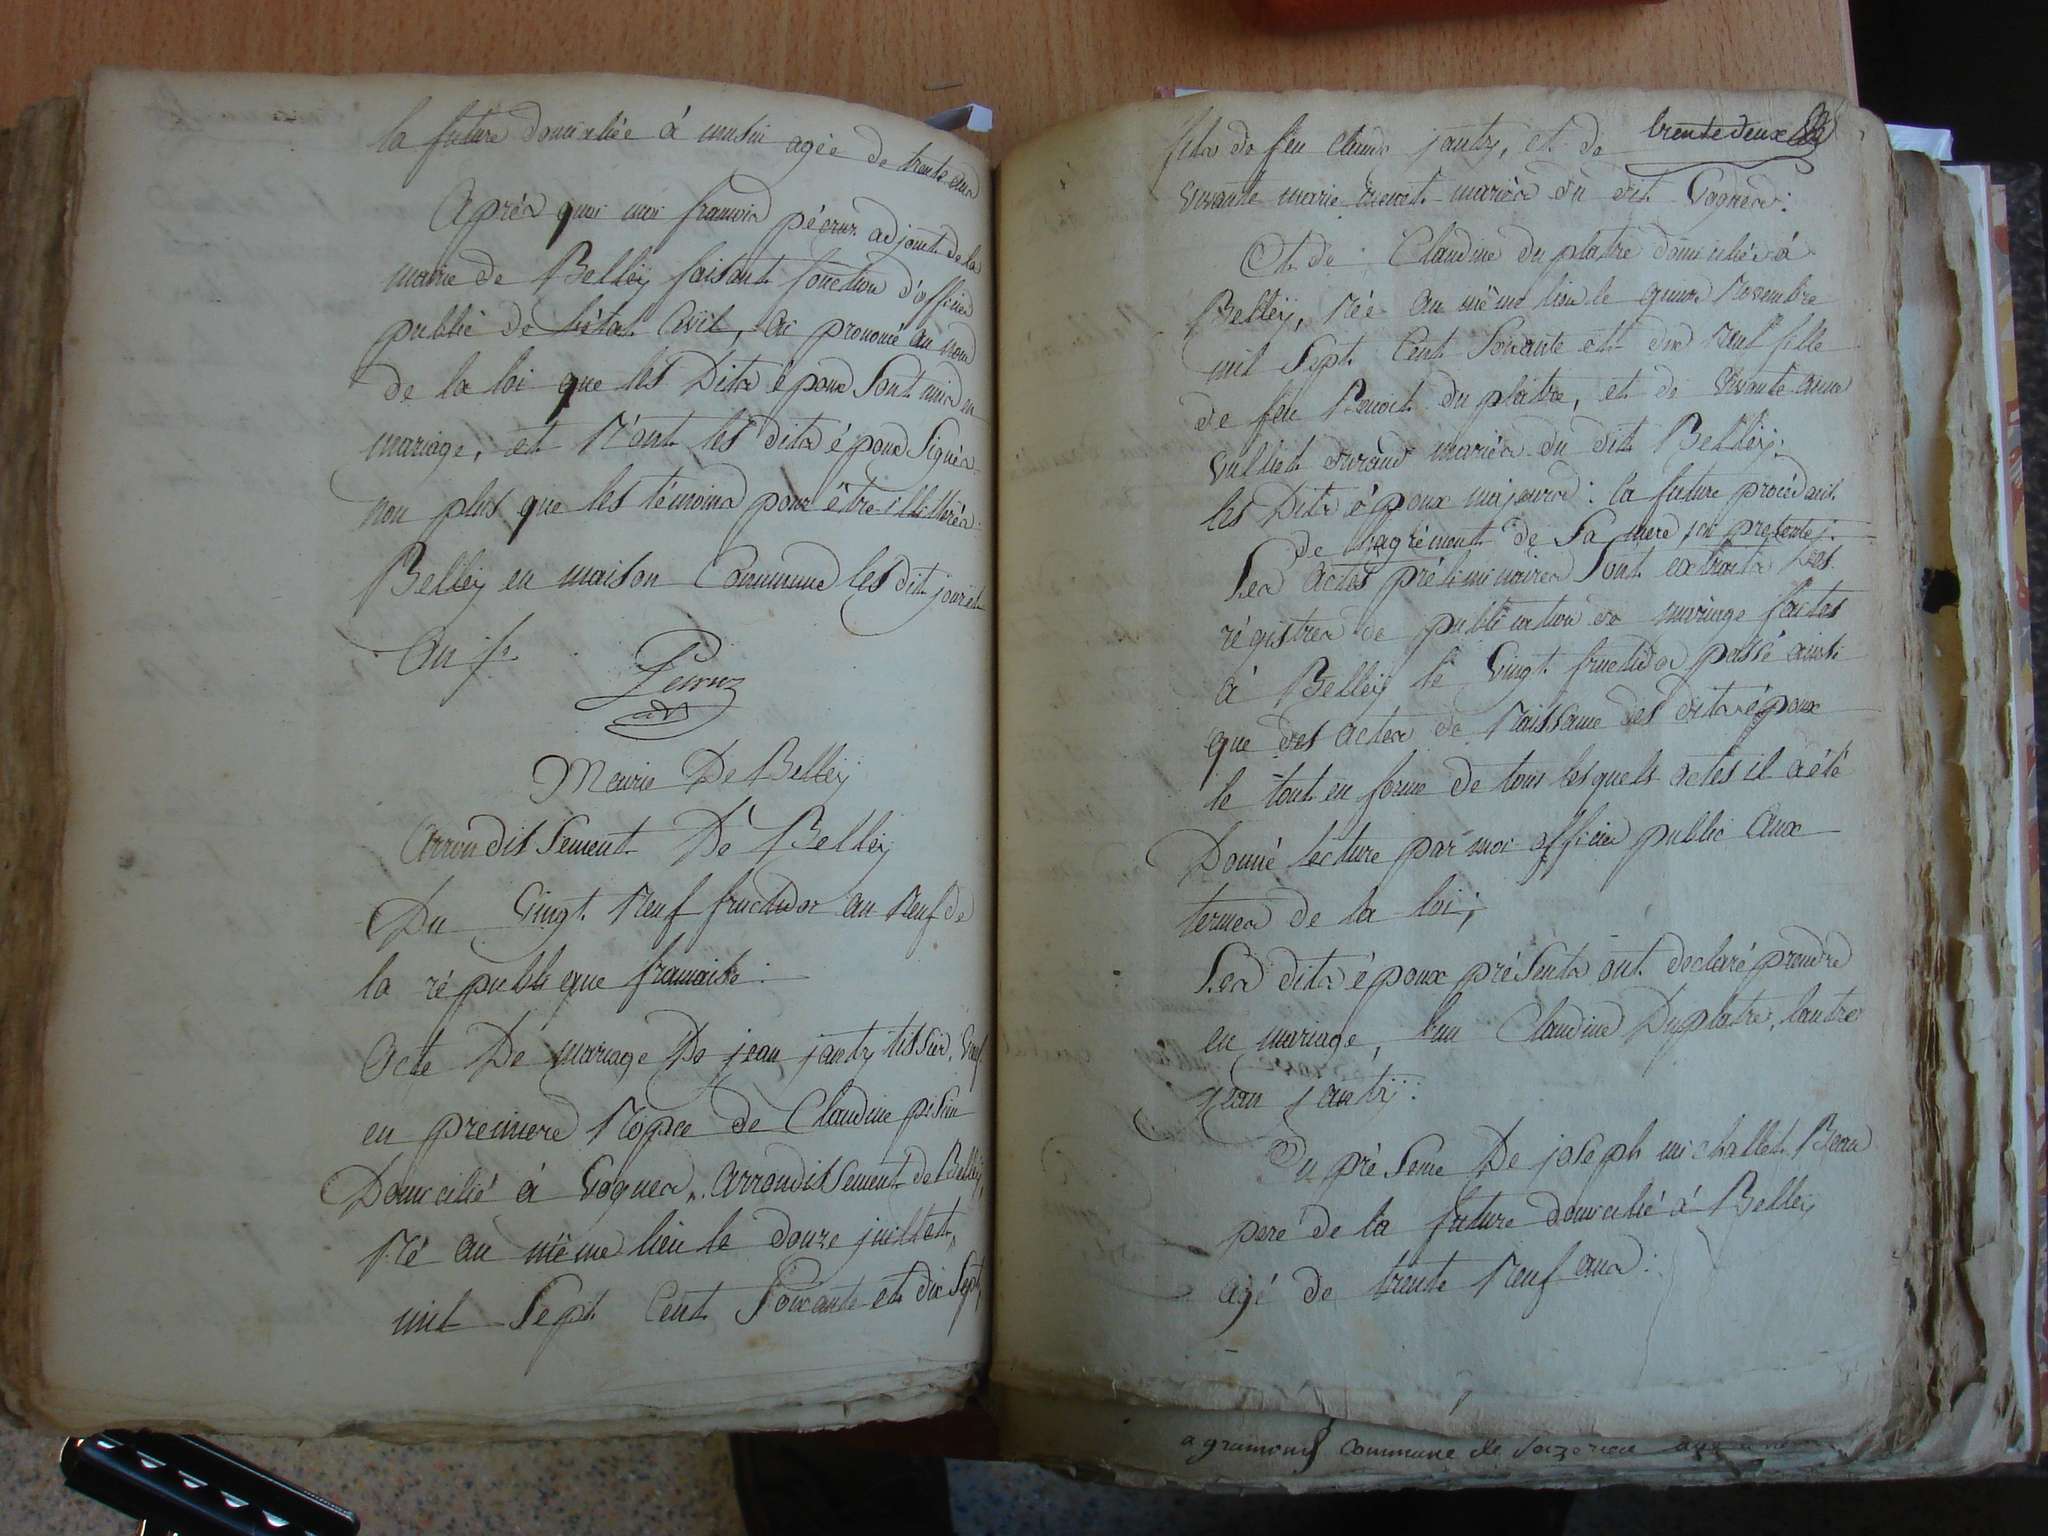 la future domiciliée à musin agée de trente ans
Après quoi moi francois pécruz adjoint de la
mairie de Belleÿ faisant fonction d'officier
public de l'état Civil, ai prononcé au nom
de la loi que les Dits époux Sont unis en
mariage, et N'ont les dits époux Signés
non plus que les témoins pour être illitérés
Belleÿ en maison Commune les dits jour et
an
Mairie De Belleÿ
arrondissement De Belleÿ
Du Vingt Neuf fructidor an Neuf de
la république francaise :
Acte De mariage De jean jantÿ tissier, Veuf
en premiere Nopce de Claudine
Domicilié à Vognes, arrondissement de Belleÿ,
Né au même lieu le douze juillet
mil Sept Cent Soixante et dix Sept,
trente deux
fils de feu Claude jantÿ, et de
Vivante marie benoit mariés du dit Vognes :
Et de Claudine du platre domiciliée à
Belleÿ, Née au même lieu le quinze Novembre
mil Sept Cent Soixante et dix Neuf fille
de feu Benoit du platre, et de Vivante anne
vulliet mariés du dit Belleÿ.
les Dits époux majeurs : la future procédant
de l'agrément de Sa mere ici presente :
Les actes préliminaires Sont extraits Des
régistres de publication de mariage faites
à Belleÿ le Vingt fructidor passé ainsi
que des actes de Naissance des dits époux
le tout en forme de tous lesquels actes il a été
Donné lecture par moi officier public aux
termes de la loi ;
Les dits époux présents ont declaré prendre
en mariage, l'un Claudine Duplatre, l'autre
jean jantÿ :
En présence De joseph michallet Beau
pere de la future domicilié à Belleÿ
agé de trente Neuf ans :
commune de